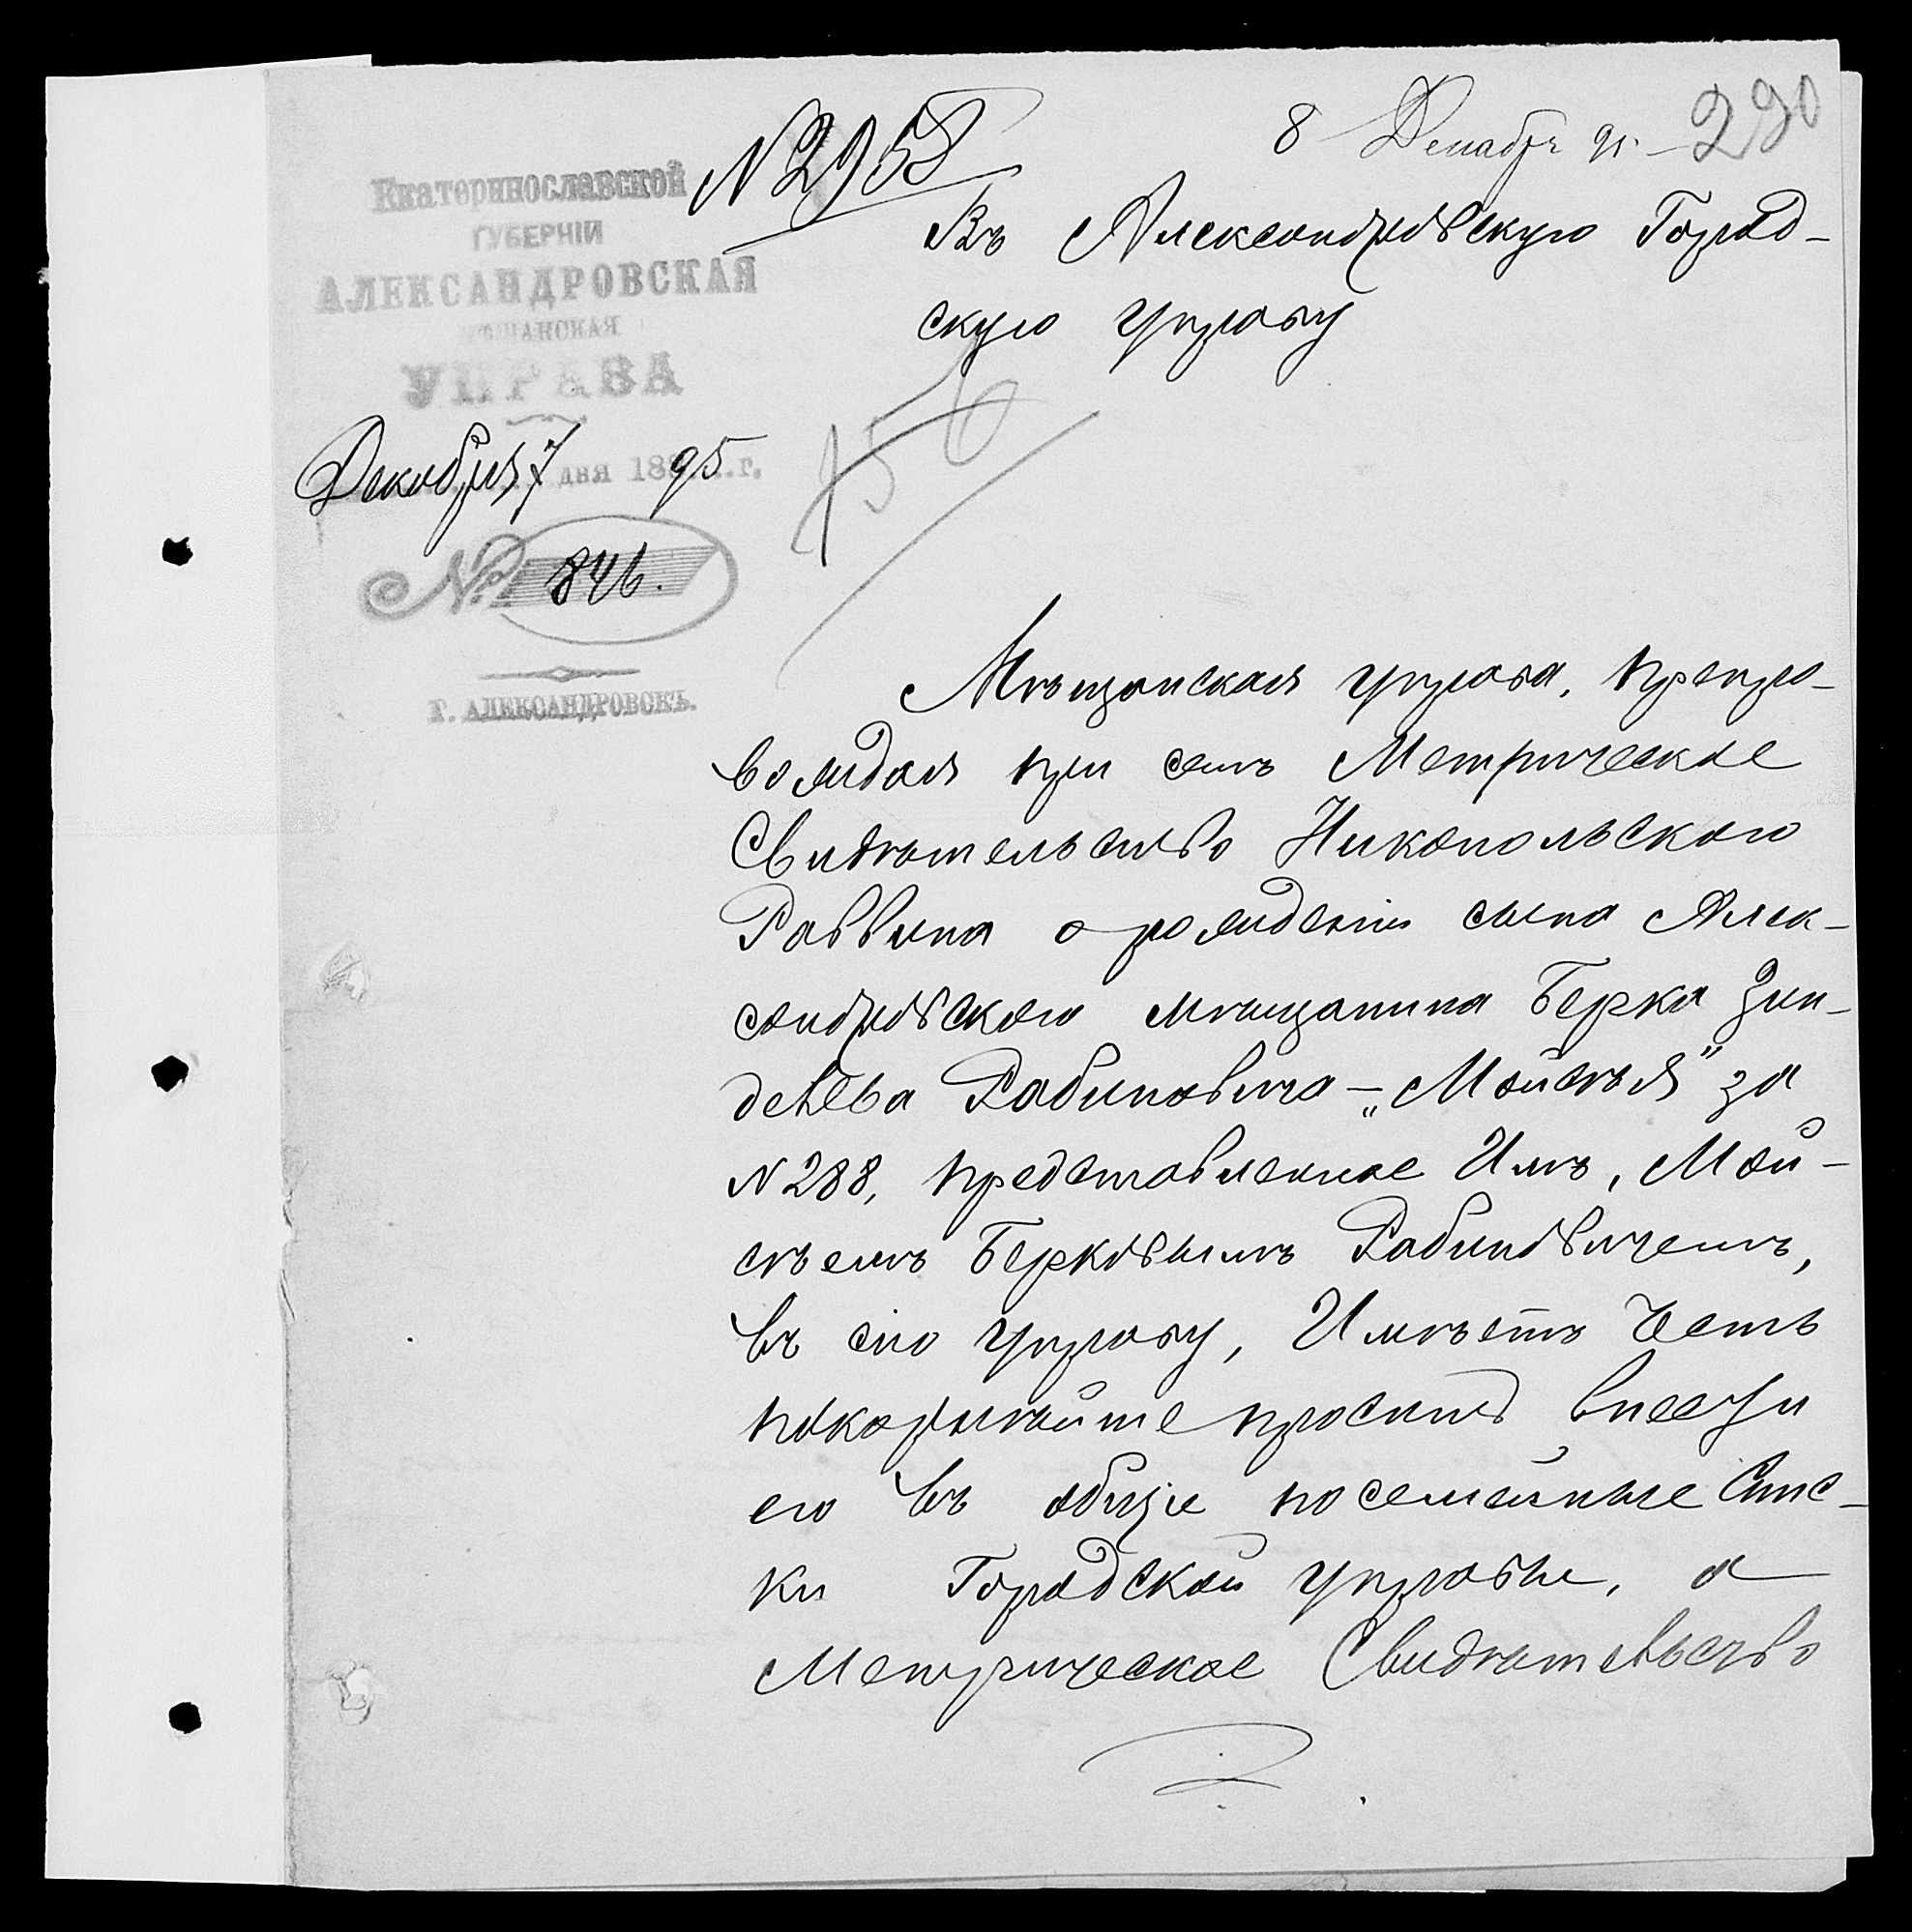 290
8 Декабря 95.
№ 2958
Екатеринославской
ГУБЕРНІИ
АЛЕКСАНДРОВСКАЯ
МѢЩАНСКАЯ
УПРАВА
Декабря 7 дня 1895 г.
№ 846.
Г. АЛЕКСАНДРОВСКЪ.
Въ Александровскую Город-
скую управу
156
Мѣщанская управа, препро-
вождая при семъ Метрическое
Свидѣтельство Никопольскаго
Раввина о рожденіи сына Алек-
сандровскаго мѣщанина Берка Зин-
делева Рабиновича – „Мойсѣя" за
№ 288, представленное Имъ, Мой-
сѣемъ Берковымъ Рабиновичемъ,
въ сію управу, Имѣетъ честь
покорнѣйше просить внести
его въ общіе посемейные Спис-
ки Городской управы, а
Метрическое Свидѣтельство